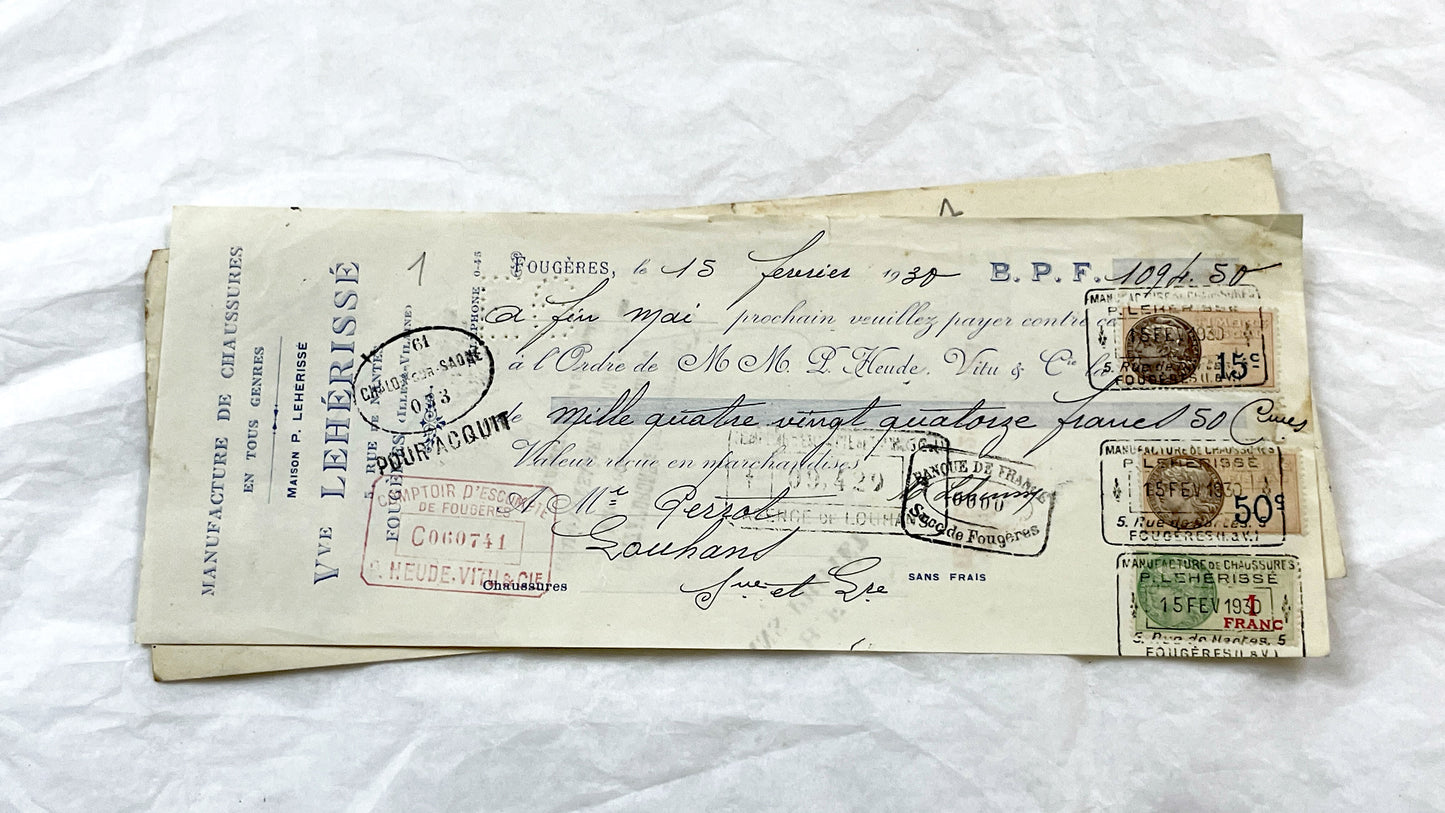 MANUFACTURE DE CHAUSSURES
EN TOUS GENRES
MAISON P. LEHERISSÉ
YVE LEHÉRISSÉ
5, RUE DE NANTES
FOUGÈRES (ILLE-&-VILAINE)
TÉLÉPHONE 0-45
1
FOUGÈRES, le 15 fevrier 1930 B. P. F. 1094.50
A fin mai prochain veuillez payer contre
à l'Ordre de M M. P. Heude, Vitu & Cie la
de mille quatre vingt quatorze francs 50 Cmes
Valeur reçue en marchandises
A Me Perzol
Louhans
Sne et Lre
SANS FRAIS
Chaussures
61
CHALON-SUR-SAONE
POUR ACQUIT
COMPTOIR D'ESCOMPTE
DE FOUGÈRES
C060741
P. HEUDE. VITU & CIE
AGENCE DE LOUHANS
BANQUE DE FRANCE
0000
Succ de Fougères
MANUFACTURE DE CHAUSSURES
P. LEHÉRISSÉ
15 FEV 1930
5. Rue de Nantes. 5
FOUGÈRES (I.&V.)
15c
MANUFACTURE DE CHAUSSURES
P. LEHÉRISSÉ
15 FEV 1930
5. Rue de Nantes. 5
FOUGÈRES (I.&V.)
50c
MANUFACTURE DE CHAUSSURES
P. LEHÉRISSÉ
15 FEV 1930
1 FRANC
5. Rue de Nantes. 5
FOUGÈRES (I.&V.)